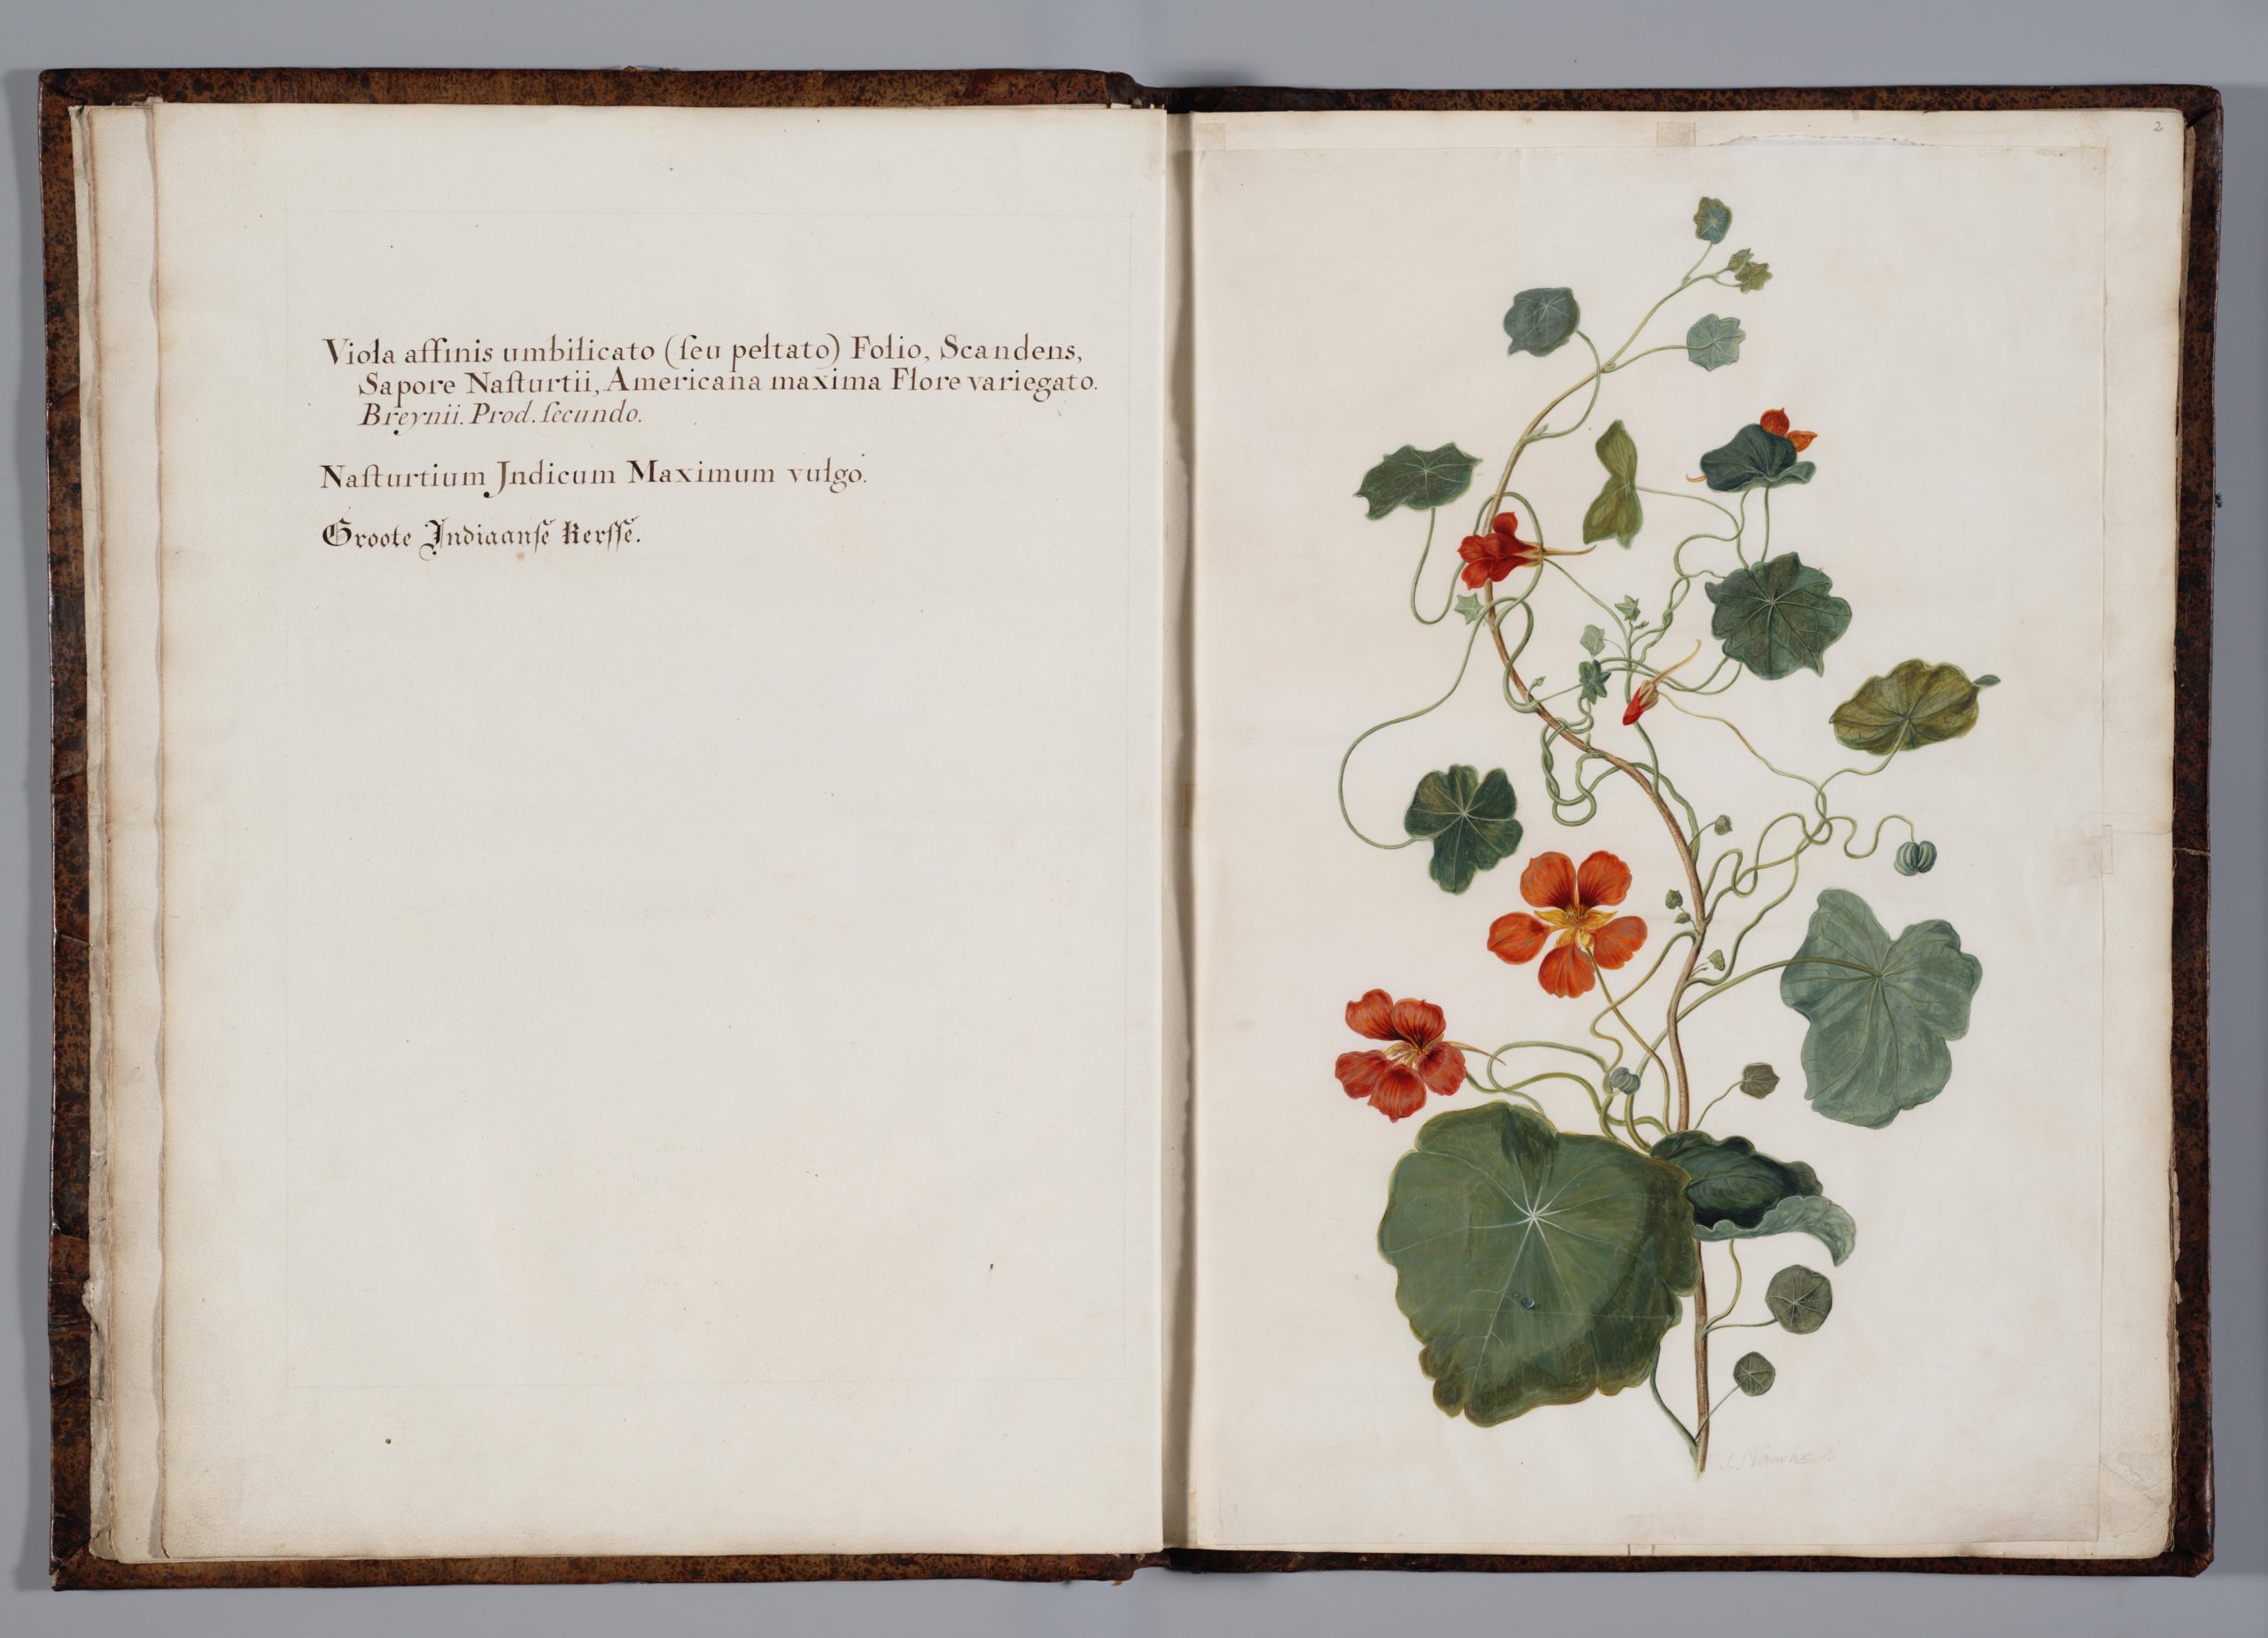 Viola affinis umbilicato (ſeu peltato) Folio, Scandens,
Sapore Naſturtii, Americana maxima Flore variegato.
Breynii. Prod. ſecundo.
Naſturtium Jndicum Maximum vulgo.
Groote Indiaanſe Kerſſe.
2